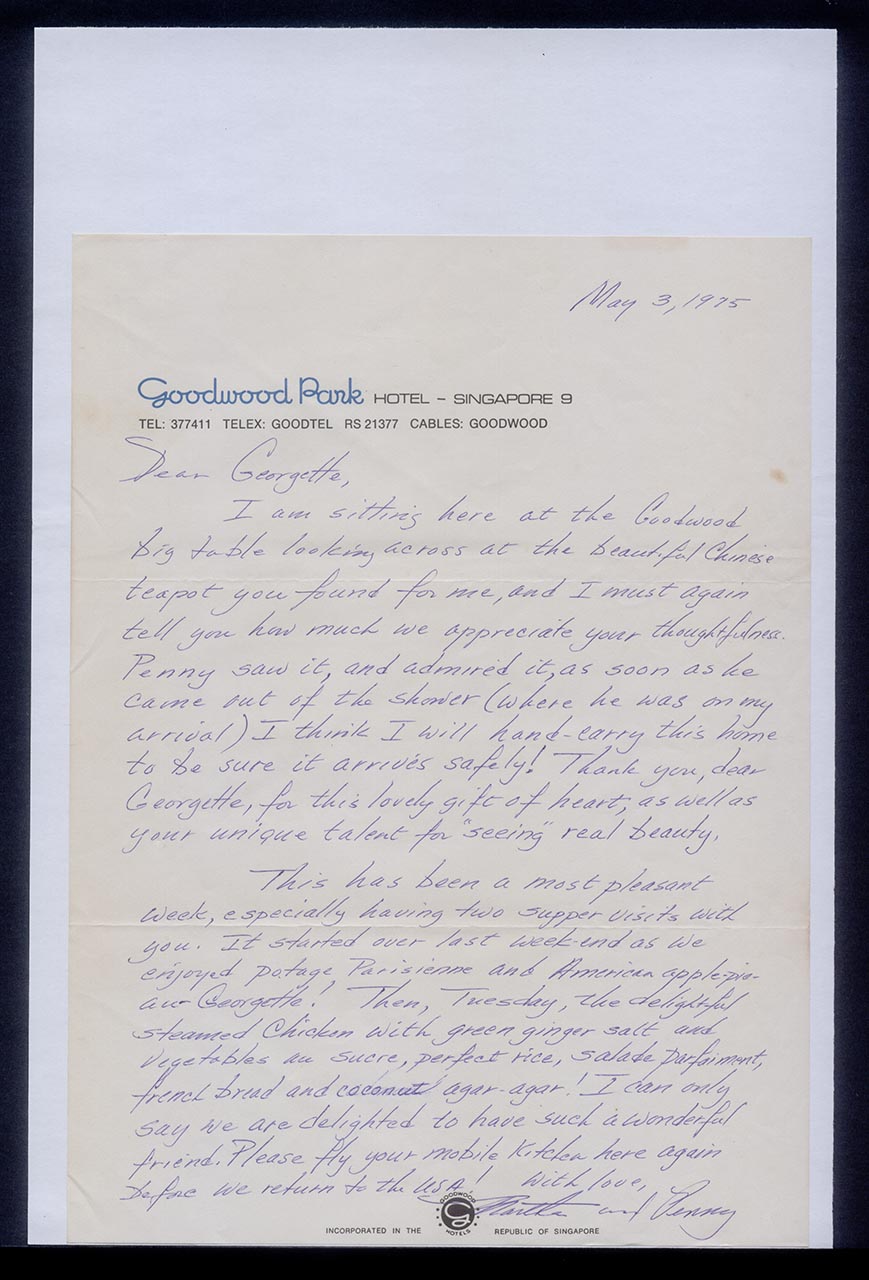 May 3, 1975
Goodwood Park HOTEL - SINGAPORE 9
TEL: 377411 TELEX: GOODTEL RS 21377 CABLES: GOODWOOD
Dear Georgette,
I am sitting here at the Goodwood
big table looking across at the beautiful Chinese
teapot you found for me, and I must again
tell you how much we appreciate your thoughtfulness.
Penny saw it, and admired it, as soon as he
came out of the shower (where he was on my
arrival) I think I will hand-carry this home
to be sure it arrives safely! Thank you, dear
Georgette, for this lovely gift of heart, as well as
your unique talent for "seeing" real beauty.
This has been a most pleasant
week, especially having two supper visits with
you. It started over last week-end as we
enjoyed potage Parisienne and American apple-pie-
au-Georgette! Then, Tuesday, the delightful
steamed Chicken with green ginger salt and
vegetables au sucre, perfect rice, salade parfaiment,
french bread and coconut agar-agar! I can only
say we are delighted to have such a wonderful
friend. Please fly your mobile Kitchen here again
before we return to the USA! With love,
Martha and Penny
GOODWOOD
HOTELS
INCORPORATED IN THE REPUBLIC OF SINGAPORE